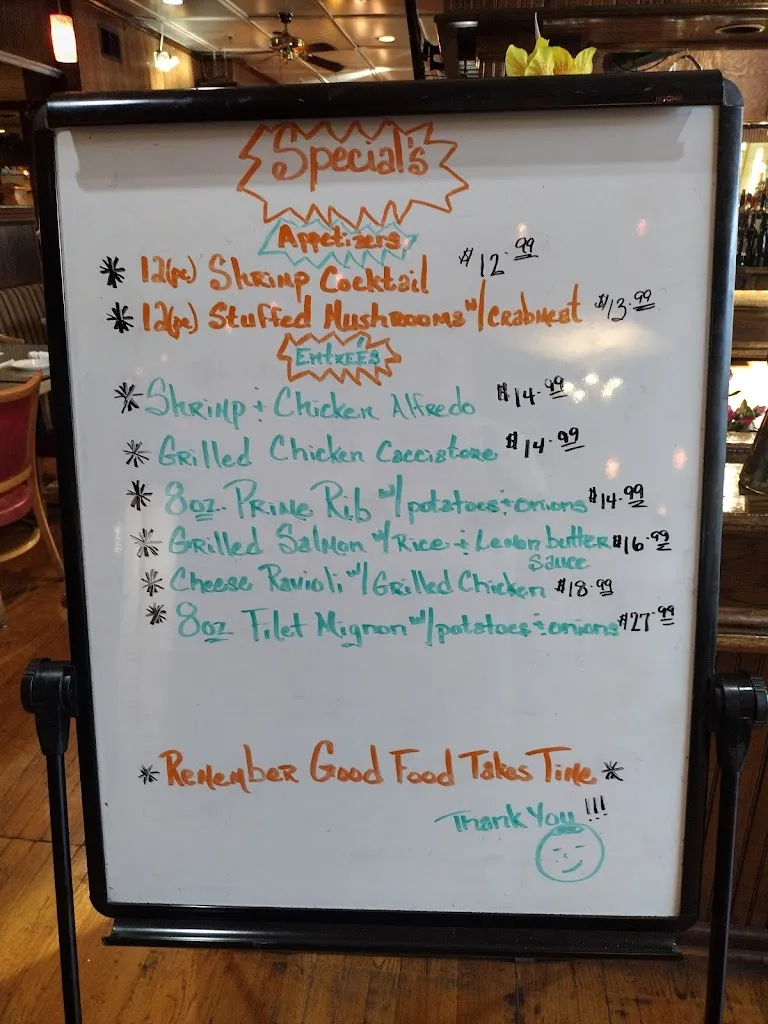 Special's
Appetizers
* 12(pc) Shrimp Cocktail $12.99
* 12(pc) Stuffed Mushrooms w/crabmeat $13.99
Entreés
* Shrimp + Chicken Alfredo $14.99
* Grilled Chicken Cacciatore $14.99
* 8oz Prime Rib w/potatoes + onions $14.99
* Grilled Salmon w/Rice + Lemon butter $16.99
Sauce
* Cheese Ravioli w/Grilled Chicken $18.99
* 8oz Filet Mignon w/potatoes + onions $27.99
* Remember Good Food Takes Time *
Thank You !!!